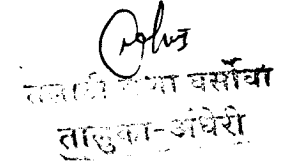 तलाठी सजा वर्सोवा
तालुका-अंधेरी